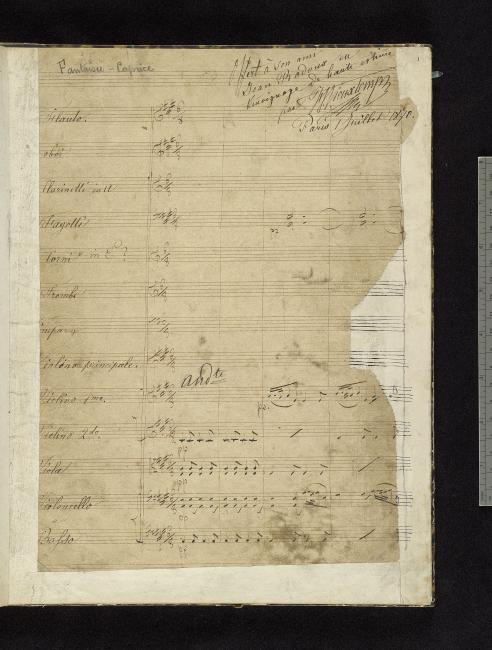 Fantaisie - Caprice
Offert à son ami
Jean
témoignage de haute estime
par HVieuxtemps
Paris 1 Juillet 1870.
Flauto.
oboi
Clarinetti in ut
Fagotti
Corni in E
Trombe
Timpany
Violino principale.
andte
Violino 1mo.
pp.
Violino 2do.
pp
Viola
pp
Violoncello
pp
Basso
pp